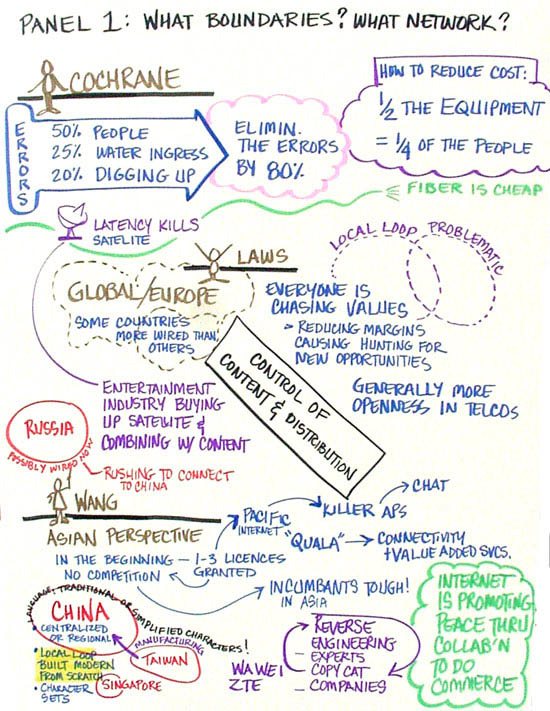 PANEL 1: WHAT BOUNDARIES? WHAT NETWORK?
COCHRANE
ERRORS
50% PEOPLE
25% WATER INGRESS
20% DIGGING UP
ELIMIN.
THE ERRORS
BY 80%
HOW TO REDUCE COST:
1/2 THE EQUIPMENT
= 1/4 OF THE PEOPLE
FIBER IS CHEAP
LATENCY KILLS
SATELITE
LAWS
GLOBAL/EUROPE
SOME COUNTRIES
MORE WIRED THAN
OTHERS
LOCAL LOOP PROBLEMATIC
EVERYONE IS
CHASING VALUES
> REDUCING MARGINS
CAUSING HUNTING FOR
NEW OPPORTUNITIES
GENERALLY MORE
OPENNESS IN TELCOS
CONTROL OF
CONTENT & DISTRIBUTION
ENTERTAINMENT
INDUSTRY BUYING
UP SATELLITE &
COMBINING W/ CONTENT
RUSSIA
POSSIBLY WIRED NOW
RUSHING TO CONNECT
TO CHINA
WANG
ASIAN PERSPECTIVE
IN THE BEGINNING — 1-3 LICENCES
GRANTED
NO COMPETITION
PACIFIC
INTERNET
KILLER APS
CHAT
"QUALA"
CONNECTIVITY
+VALUE ADDED SVCS.
INCUMBANTS TOUGH!
IN ASIA
LANGUAGE; TRADITIONAL OR SIMPLIFIED CHARACTERS!
CHINA
• CENTRALIZED
OR REGIONAL
• LOCAL LOOP
BUILT MODERN
FROM SCRATCH
• CHARACTER
SETS
MANUFACTURING
TAIWAN
SINGAPORE
WAWEI
ZTE
REVERSE
ENGINEERING
– EXPERTS
– COPY CAT
– COMPANIES
INTERNET
IS PROMOTING
PEACE THRU
COLLAB'N
TO DO
COMMERCE